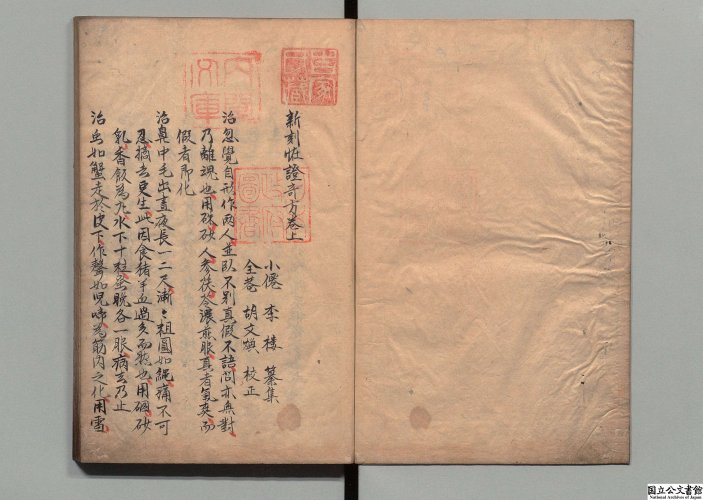 新刻怪證奇方卷上
小僊 李 樓 纂集
全菴 胡文煥 校正
治忽覺自形作兩人並臥不別真假不語問亦無對
乃離魂也用硃砂人參茯苓濃煎服真者氣爽而
假者即化
治鼻中毛出晝夜長一二尺漸〻粗圓如繩痛不可
忍摘去更生此因食猪羊血過多而致也用硇砂
乳香飯為丸水下十粒空晚各一服病去乃止
治虫如蟹走於皮下作聲如兒啼為筋肉之化用雷
国立公文書館
National Archives of Japan